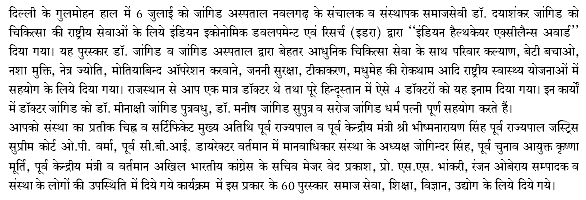 दिल्ली के गुलमोहन हाल में 6 जुलाई को जांगिड अस्पताल नवलगढ़ के संचालक व संस्थापक समाजसेवी डॉ. दयाशंकर जांगिड को
चिकित्सा की राष्ट्रीय सेवाओं के लिये इंडियन इकोनोमिक डवलपमेन्ट एवं रिसर्च (इडरा) द्वारा ‘‘इंडियन हैल्थकेयर एक्सीलैन्स अवार्ड’’
दिया गया। यह पुरस्कार डॉ. जांगिड व जांगिड अस्पताल द्वारा बेहतर आधुनिक चिकित्सा सेवा के साथ परिवार कल्याण, बेटी बचाओ,
नशा मुक्ति, नेत्र ज्योति, मोतियाबिन्द ऑपरेशन करवाने, जननी सुरक्षा, टीकाकरण, मधुमेह की रोकथाम आदि राष्ट्रीय स्वास्थ्य योजनाओं में
सहयोग के लिये दिया गया। राजस्थान से आप एक मात्र डॉक्टर थे तथा पूरे हिन्दूस्तान में ऐसे 4 डॉक्टरों को यह इनाम दिया गया। इन कार्यों
में डॉक्टर जांगिड को डॉ. मीनाक्षी जांगिड पुत्रवधु, डॉ. मनीष जांगिड सुपुत्र व सरोज जांगिड धर्म पत्नी पूर्ण सहयोग करते हैं।
आपको संस्था का प्रतीक चिह्न व सर्टिफिकेट मुख्य अतिथि पूर्व राज्यपाल व पूर्व केन्द्रीय मंत्री श्री भीष्मनारायण सिंह पूर्व राज्यपाल जस्ट्रिस
सुप्रीम कोर्ट ओ.पी. वर्मा, पूर्व सी.बी.आई. डायरेक्टर वर्तमान में मानवाधिकार संस्था के अध्यक्ष जोगिन्दर सिंह, पूर्व चुनाव आयुक्त कृष्णा
मूर्ति, पूर्व केन्द्रीय मंत्री व वर्तमान अखिल भारतीय कांग्रेस के सचिव मेजर वेद प्रकाश, प्रो. एस.एस. भांकरी, रंजन ओबेराय सम्पादक व
संस्था के लोगों की उपस्थिति में दिये गये कार्यक्रम में इस प्रकार के 60 पुरस्कार समाज सेवा, शिक्षा, विज्ञान, उद्योग के लिये दिये गये।